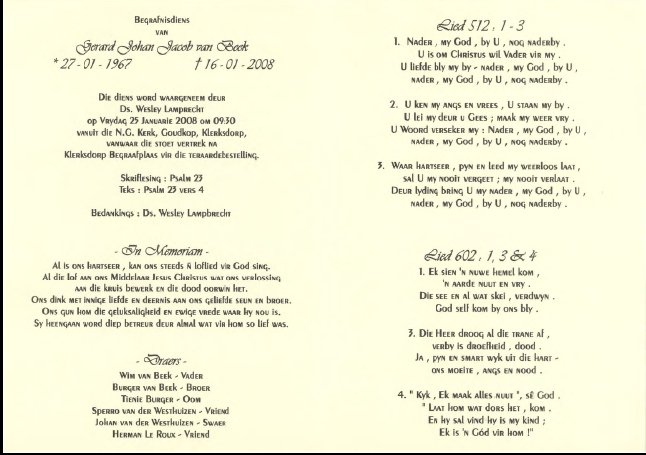 Begrafnisdiens
van
Gerard Johan Jacob van Beek
* 27 - 01 - 1967 † 16 - 01 - 2008
Die diens word waargeneem deur
Ds. Wesley Lamprecht
op Vrydag 25 Januarie 2008 om 09:30
vanuit die N.G. Kerk, Goudkop, Klerksdorp,
vanwaar die stoet vertrek na
Klerksdorp Begraafplaas vir die teraardebestelling.
Skriflesing : Psalm 23
Teks : Psalm 23 vers 4
Bedankings : Ds. Wesley Lampbrecht
- In Memoriam -
Al is ons hartseer , kan ons steeds ñ loflied vir God sing.
Al die lof aan ons Middelaar Jesus Christus wat ons verlossing
aan die kruis bewerk en die dood oorwin het.
Ons dink met innige liefde en deernis aan ons geliefde seun en broer.
Ons gun hom die geluksaligheid en ewige vrede waar hy nou is.
Sy heengaan word diep betreur deur almal wat vir hom so lief was.
- Draers -
Wim van Beek - Vader
Burger van Beek - Broer
Tienie Burger - Oom
Sperro van der Westhuizen - Vriend
Johan van der Westhuizen - Swaer
Herman Le Roux - Vriend
Lied 512 : 1 - 3
1. Nader , my God , by U , nog naderby .
U is om Christus wil Vader vir my .
U liefde bly my by - nader , my God , by U ,
nader , my God , by U , nog naderby .
2. U ken my angs en vrees , U staan my by .
U lei my deur u Gees ; maak my weer vry .
U Woord verseker my : Nader , my God , by U ,
nader , my God , by U , nog naderby .
3. Waar hartseer , pyn en leed my weerloos laat ,
sal U my nooit vergeet ; my nooit verlaat .
Deur lyding bring U my nader , my God , by U ,
nader , my God , by U , nog naderby .
Lied 602 : 1, 3 & 4
1. Ek sien 'n nuwe hemel kom ,
'n aarde nuut en vry .
Die see en al wat skei , verdwyn .
God self kom by ons bly .
3. Die Heer droog al die trane af ,
verby is droefheid , dood .
Ja , pyn en smart wyk uit die hart -
ons moeite , angs en nood .
4. " Kyk , Ek maak alles nuut ", sê God .
" Laat hom wat dors het , kom .
En hy sal vind hy is my kind ;
Ek is 'n Gód vir hom !"